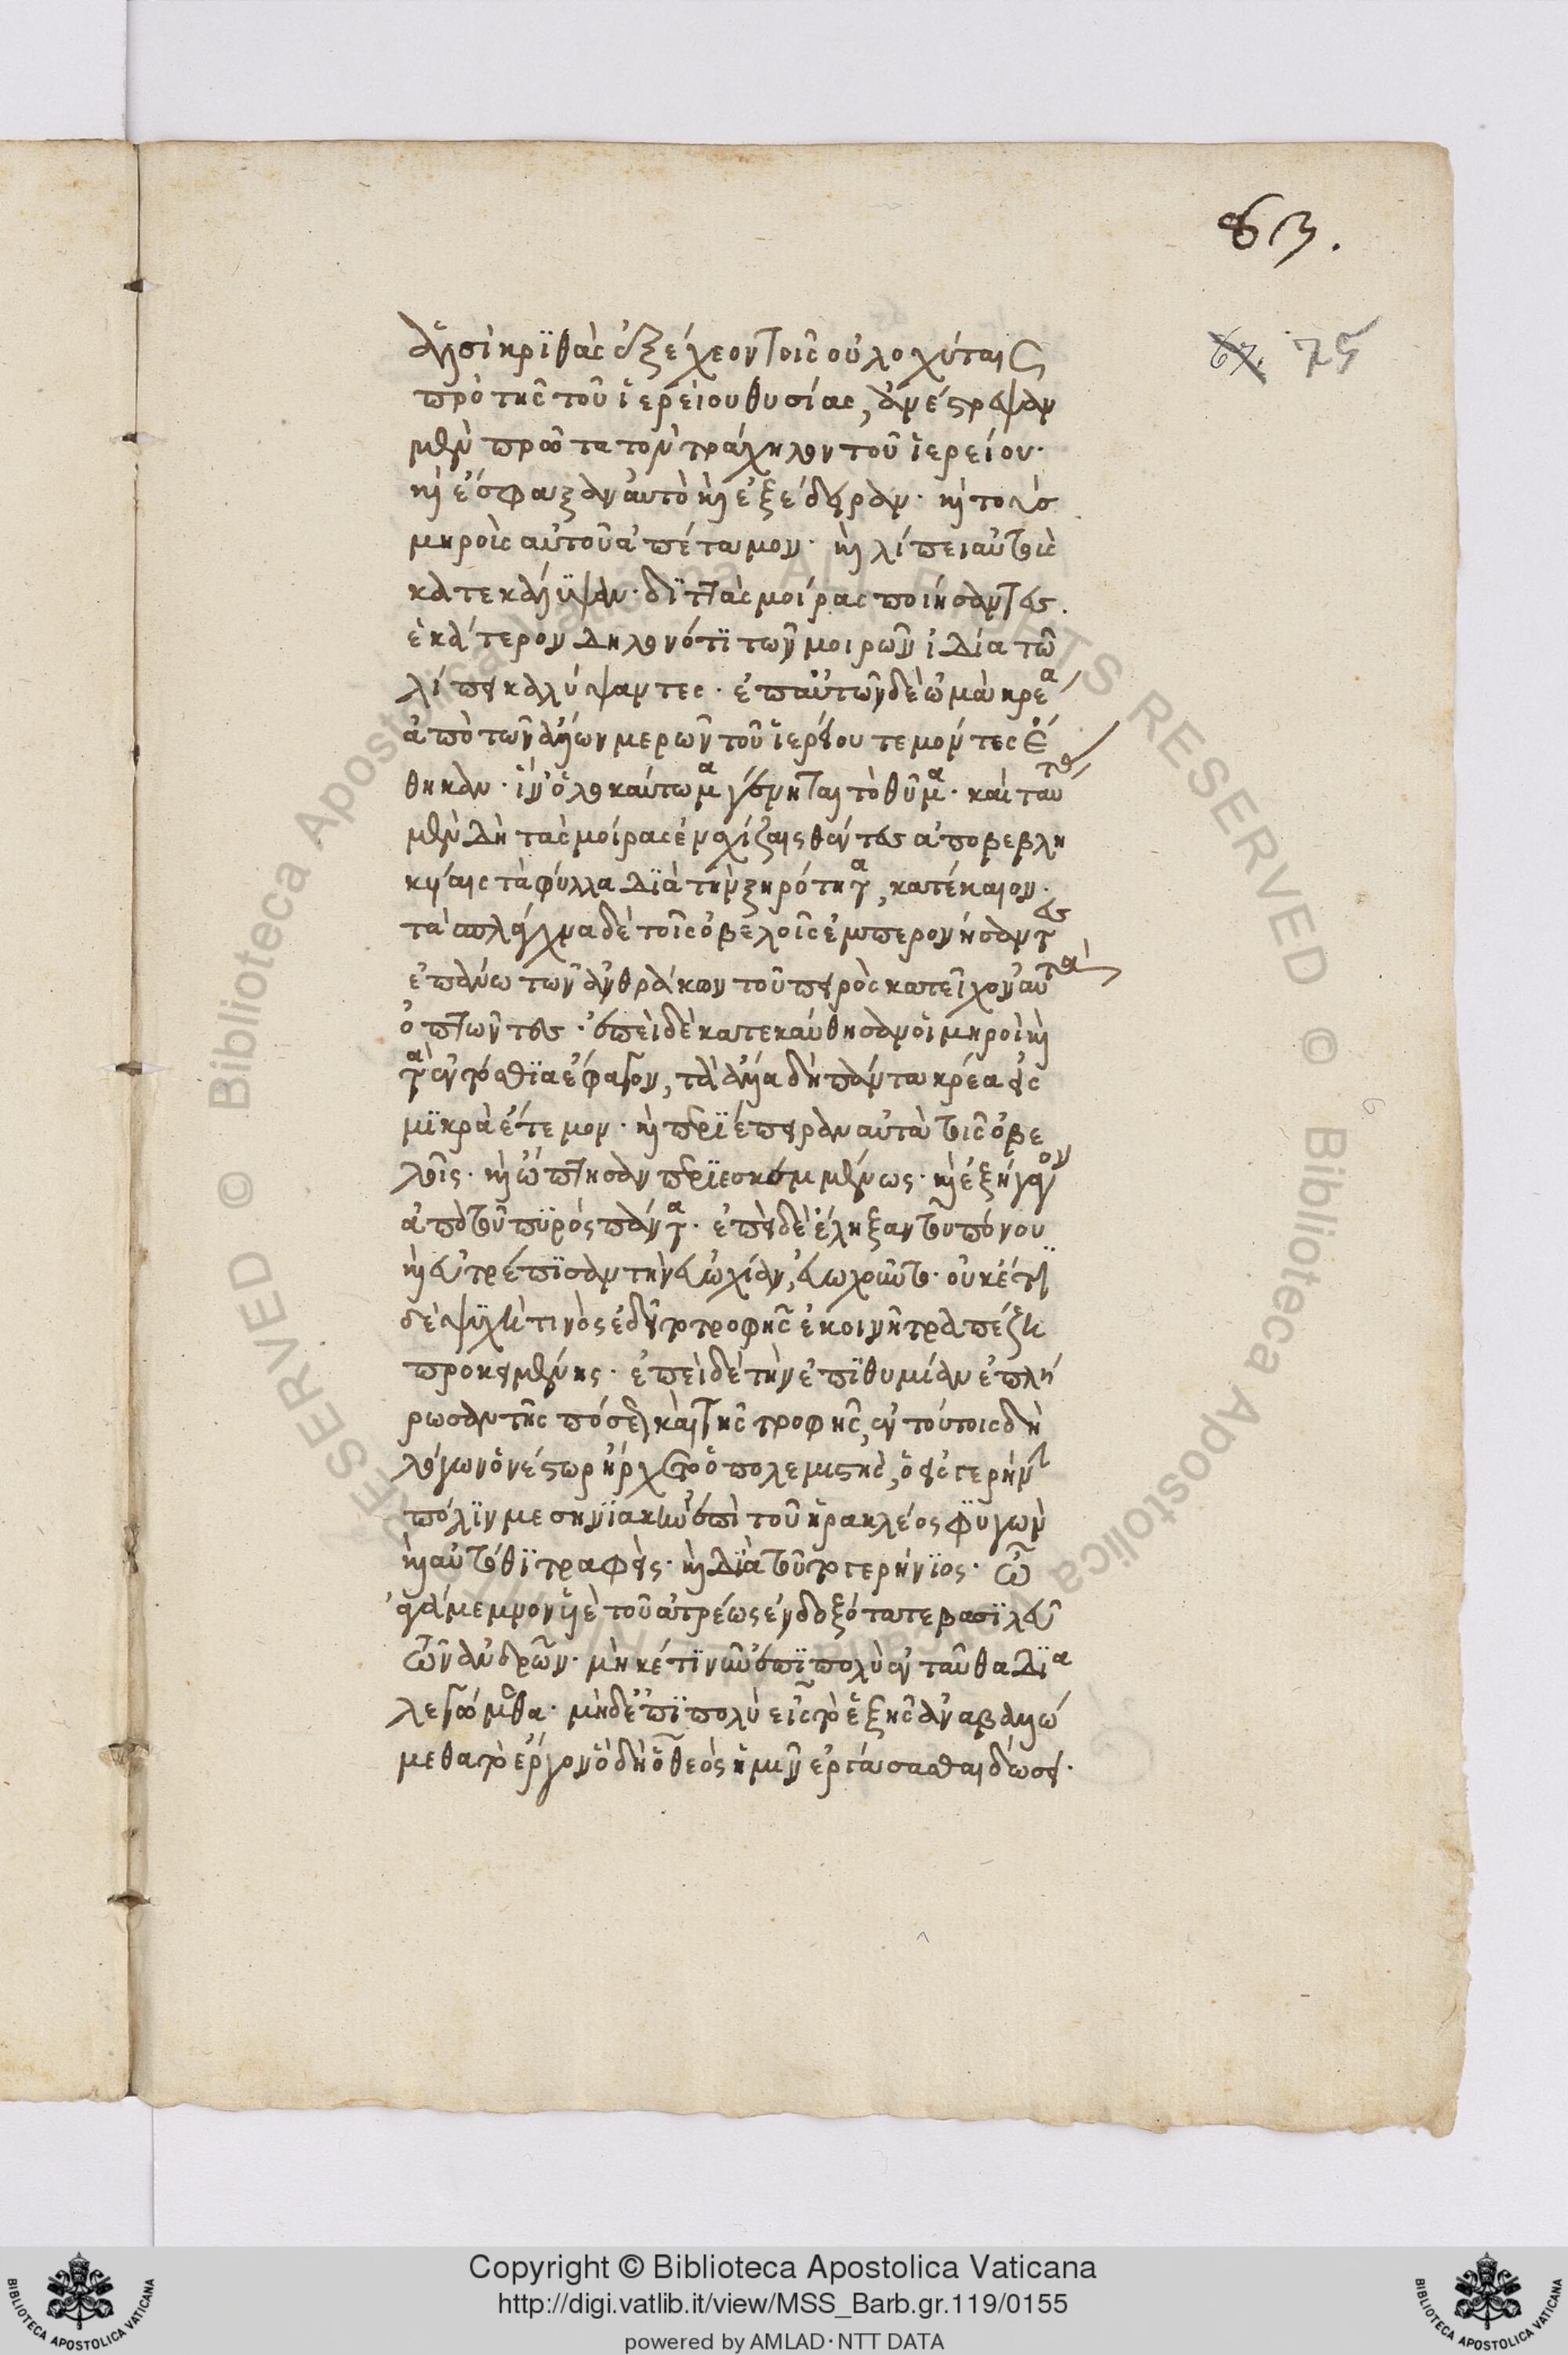 63.
67. 75
ἅλσὶ κρϊθὰς ἐξέχεον τοῖς οὐλοχύταις
πρὸ τῆς τοῦ ἱερείου θυσίας, ἀνέστρεψαν
μὲν πρῶτα τὸν τράχηλον τοῦ ἱερείου·
καὶ ἔσφαξαν αὐτὸ καὶ ἐξέδειραν· καὶ τοὺς
μηροὺς αὐτοῦ ἀπέταμον· καὶ λίπει αὐτοὺς
κατεκάλυψαν· διττὰς μοίρας ποιήσαντες.
ἑκάτερον δηλονότι τῶν μοιρῶν ἰδία τῶ
λίπει καλύψαντες· ἐπ' αὐτῶν δὲ ὠμὰ κρέα
ἀπὸ τῶν ἄλλων μερῶν τοῦ ἱερείου τεμόντες ἔ
θηκαν· ἵν' ὁλοκαύτωμα γένηται τὸ θῦμα· καὶ ταύτας
μὲν δὴ τὰς μοίρας ἐν σχίζαις θέντες ἀποβεβλη
κυίαις τὰ φύλλα διὰ τὴν ξηρότητα, κατέκαιον·
τὰ σπλάγχνα δὲ τοῖς ὀβελοῖς ἐμπερονήσαντες
ἐπάνω τῶν ἀνθράκων τοῦ πυρὸς κατεῖχον αὐτὰ
ὀπτῶντες· ἐπεὶ δὲ κατεκαύθησαν οἱ μηροὶ καὶ
τὰ ἐντόσθια ἔφαγον, τὰ ἄλλα δὴ πάντα κρέα εἰς
μικρὰ ἔτεμον· καὶ περιέπειραν αὐτὰ τοῖς ὀβε
λοῖς· καὶ ὤπτησαν περιεσκεμμένως· καὶ ἐξήγαγον
ἀπὸ τοῦ πυρὸς πάντα· ἐπεὶ δὲ ἔληξαν τοῦ πόνου
καὶ εὐτρέπισαν τὴν εὐωχίαν, εὐωχοῦντο· οὐκέτι
δὲ ψυχή τινὸς ἐδεῖτο τροφῆς ἐκοινῆ τραπέζη
προκειμένης· ἐπεὶ δὲ τὴν ἐπιθυμίαν ἐπλή
ρωσαν τῆς πόσεως καὶ τῆς τροφῆς, ἐν τούτοις δὴ
λόγων ὁ νέστωρ ἤρχετο ὁ πολεμιστὴς, ὁ εἰς γερήνην
πόλιν μεσηνϊακὴν ἐπὶ τοῦ ἡρακλέος φυγὼν
καὶ αὐτόθι τραφεὶς· καὶ διὰ τοῦτο γερήνιος· ὦ
ἀγάμεμνον υἱὲ τοῦ ἀτρέως ἐνδοξότατε βασιλεῦ
τῶν ἀνδρῶν· μηκέτι νῦν ἐπὶ πολὺ ἐνταῦθα δια
λεγώμεθα· μὴδ' ἐπὶ πολὺ εἰς τὸ ἑξῆς ἀναβαλλώ
μεθα τὸ ἔργον ὃ δὴ ὁ θεὸς ἡμῖν ἐργάσασθαι δώσει·
Copyright © Biblioteca Apostolica Vaticana
http://digi.vatlib.it/view/MSS_Barb.gr.119/0155
powered by AMLAD·NTT DATA